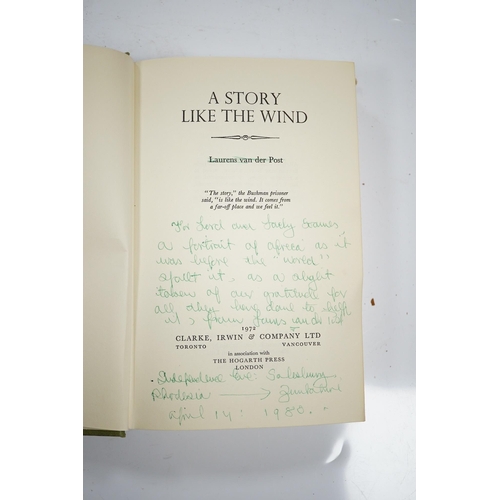 A STORY
LIKE THE WIND
Laurens van der Post
"The story," the Bushman prisoner
said, "is like the wind. It comes from
a far-off place and we feel it."
For Lord and Lady Soames,
a portrait of africa as it
was before the "world"
spoilt it, as a slight
token of our gratitude for
all they have done to
it, from Laurens van der Post
1972
CLARKE, IRWIN & COMPANY LTD
TORONTO VANCOUVER
in association with
THE HOGARTH PRESS
LONDON
Independence Eve: Salisbury,
Rhodesia → Zimbabwe
april 17: 1980.